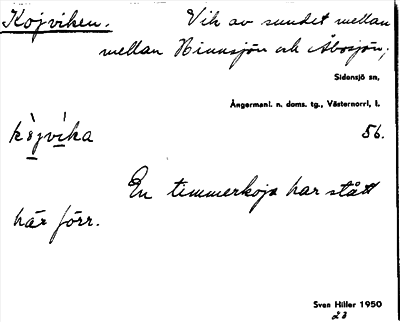 Kojviken. Vik av sundet mellan
mellan Binnsjön och Åbosjön;
Sidensjö sn,
Ångermanl. n. doms. tg., Västernorrl. l.
56.
En timmerkoja har stått
här förr.
Sven Hiller 1950
23